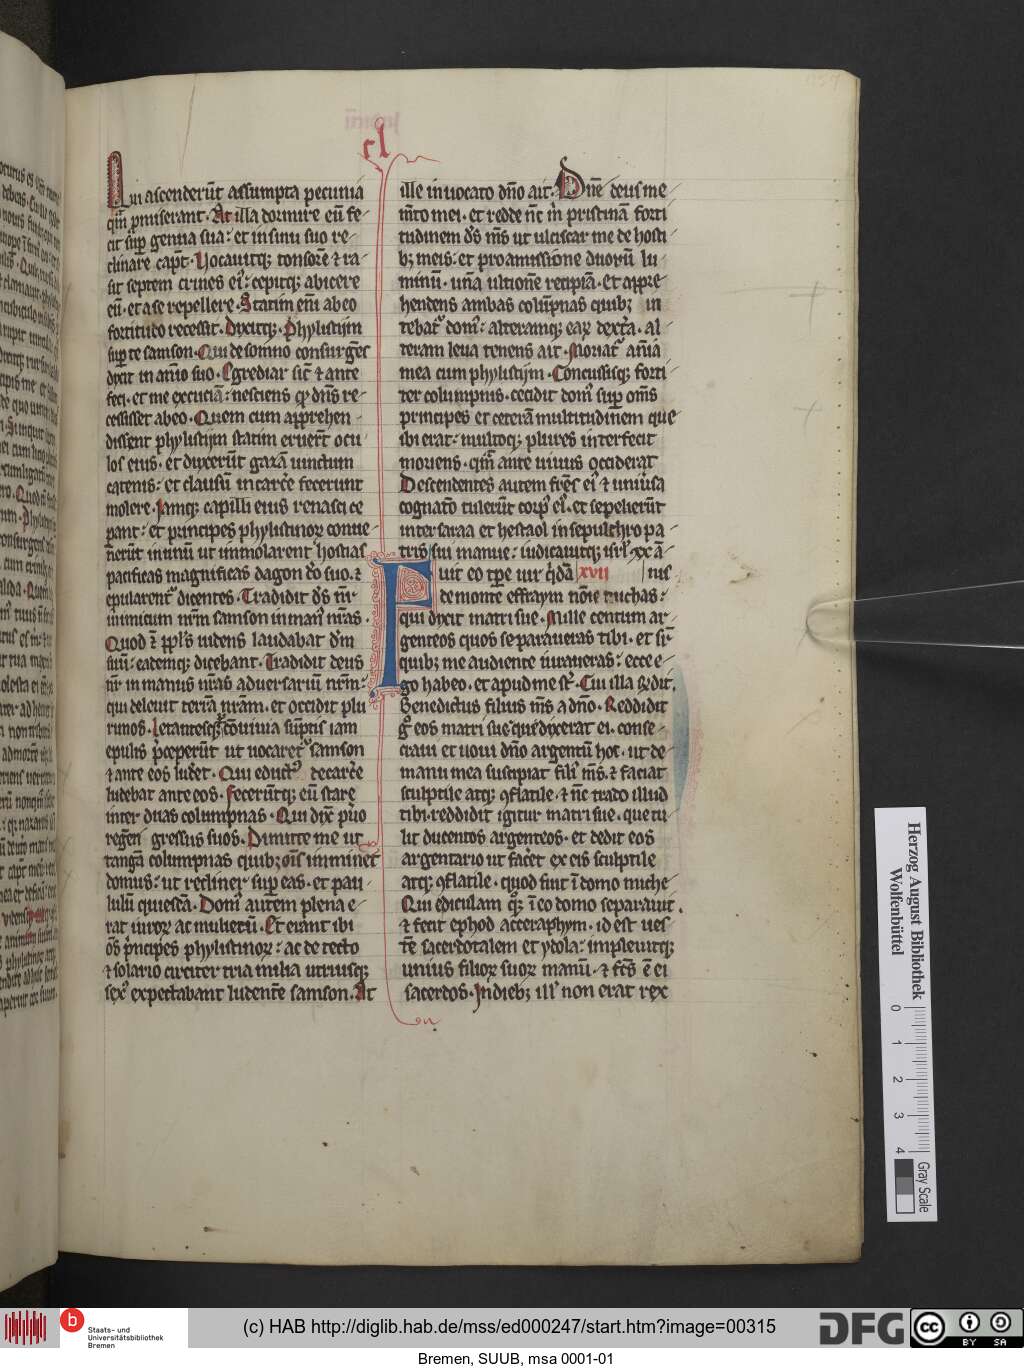 cl
Qui ascenderūt assumpta pecunia
qm̄ pmiserant. At illa dormire eū fe-
cit sup̄ genua sua: et in sinu suo re-
clinare capt̄. Vocauitqꝫ tonsorē ⁊ ra-
sit septem crines ei9: cepitqꝫ abicere
eū. et a se repellere. Statim enī abeo
fortitudo recessit. Dixitqꝫ. Phylistijm
sup te samson. Qui de somno consurgēs
dixit in aīo suo. Egrediar sic̄ ⁊ ante
feci. et me excuciā: nesciens qd̄ dn̄s re-
cessisset abeo. Quem cum apprehen-
dissent phylistijm statim eruerūt ocu-
los eius. et duxerūt gazā uinctum
catenis: et clausū in carcē fecerunt
molere. Jamqꝫ capilli eius renasci ce
perant: et principes phylistinoꝝ conue-
nerūt in unū ut immolarent hostias
pacificas magnificas dagon deo suo. ⁊
epularent dicentes. Tradidit ds̄ nr̄
inimicum nrm̄ samson in man9 nrās.
Quod ⁊ ppl̄s uidens laudabat dm̄
suū: eademqꝫ dicebant. Tradidit deus
nr̄ in manus nrās aduersariū nrm̄:
qui deleuit terrā nrām. et occidit plu
rimos. Letantesqꝫ ꝑ cōuiuia sūptis iam
epulis pceperūt ut uocaret samson
⁊ ante eos luderet. Qui eductus de carcē
ludebat ante eos. Fecerūtqꝫ eū stare
inter duas columpnas. Qui dix̄ puero
regēti gressus suos. Dimitte me ut
tangā columpnas quibꝫ oīs imminet
domus: ut recliner sup eas. et pau-
lulū quiescā. Dom9 autem plena e-
rat uiroꝝ ac mulierū. Et erant ibi
oēs pncipes phylistinoꝝ: ac de tecto
⁊ solario circiter tria milia utriusqꝫ
sex9 expectabant ludentē samson. At
ille inuocato dn̄o ait. Dn̄e deus me-
mēto mei. et redde nc̄ m̄ pristinā forti
tudinem ds̄ ms̄ ut ulciscar me de hosti
bꝫ meis: et pro amissione duorū lu-
minū. unā ultionē recipiā. Et appre-
hendens ambas colūpnas quibꝫ in
tebat dom9: alteramqꝫ eaꝝ dextra. al-
teram leua tenens ait. Moriat aīa
mea cum phylistijm. Concussisqꝫ forti-
ter columpnis. cecidit dom9 sup om̄s
principes et ceterā multitudinem que
ibi erat: multoqꝫ plures interfecit
moriens. qm̄ ante uiuus occiderat
Descendentes autem fres ei9 ⁊ uniūsa
cognatō tulerūt corp9 ei9. et sepelierūt
inter saraa et hestaol in sepulchro pa-
tris sui manue: iudicauitqꝫ isrl̄ xx ā-
Fuit eo tpe uir qdā xvii nis
de monte effraym noīe michas:
qui dixit matri sue. Mille centum ar-
genteos quos separaueras tibi. et su-
quibꝫ me audiente iuraueras: ecce e-
go habeo. et apud me st̄. Cui illa rn̄dit.
Benedictus filius ms̄ a dn̄o. Reddidit
g̊ eos matri sue que dixerat ei. conse-
craui et uoui dn̄o argentū hoc. ut de-
manu mea suscipiat fili9 ms̄. ⁊ faciat
sculptile atqꝫ ꝯflatile. ⁊ nc̄ trado illud
tibi. reddidit igitur matri sue. que tu-
lit ducentos argenteos. et dedit eos
argentario ut facet ex eis sculptile
atqꝫ ꝯflatile. quod fuit ī domo miche-
Qui ediculam qꝫ ī eo domo separauit.
⁊ fecit ephod ac ceraphym. id est ues-
tē sacerdotalem et ydola: impleuitqꝫ
unius filioꝝ suoꝝ manū. ⁊ fcs̄ ē ei
sacerdos. Jn diebꝫ ill̄ non erat rex
Herzog August Bibliothek
Wolfenbüttel
0 1 2 3 4
Gray Scale
b Staats- und
Universitätsbibliothek
Bremen
(c) HAB http://diglib.hab.de/mss/ed000247/start.htm?image=00315
DFG
cc BY SA
Bremen, SUUB, msa 0001-01